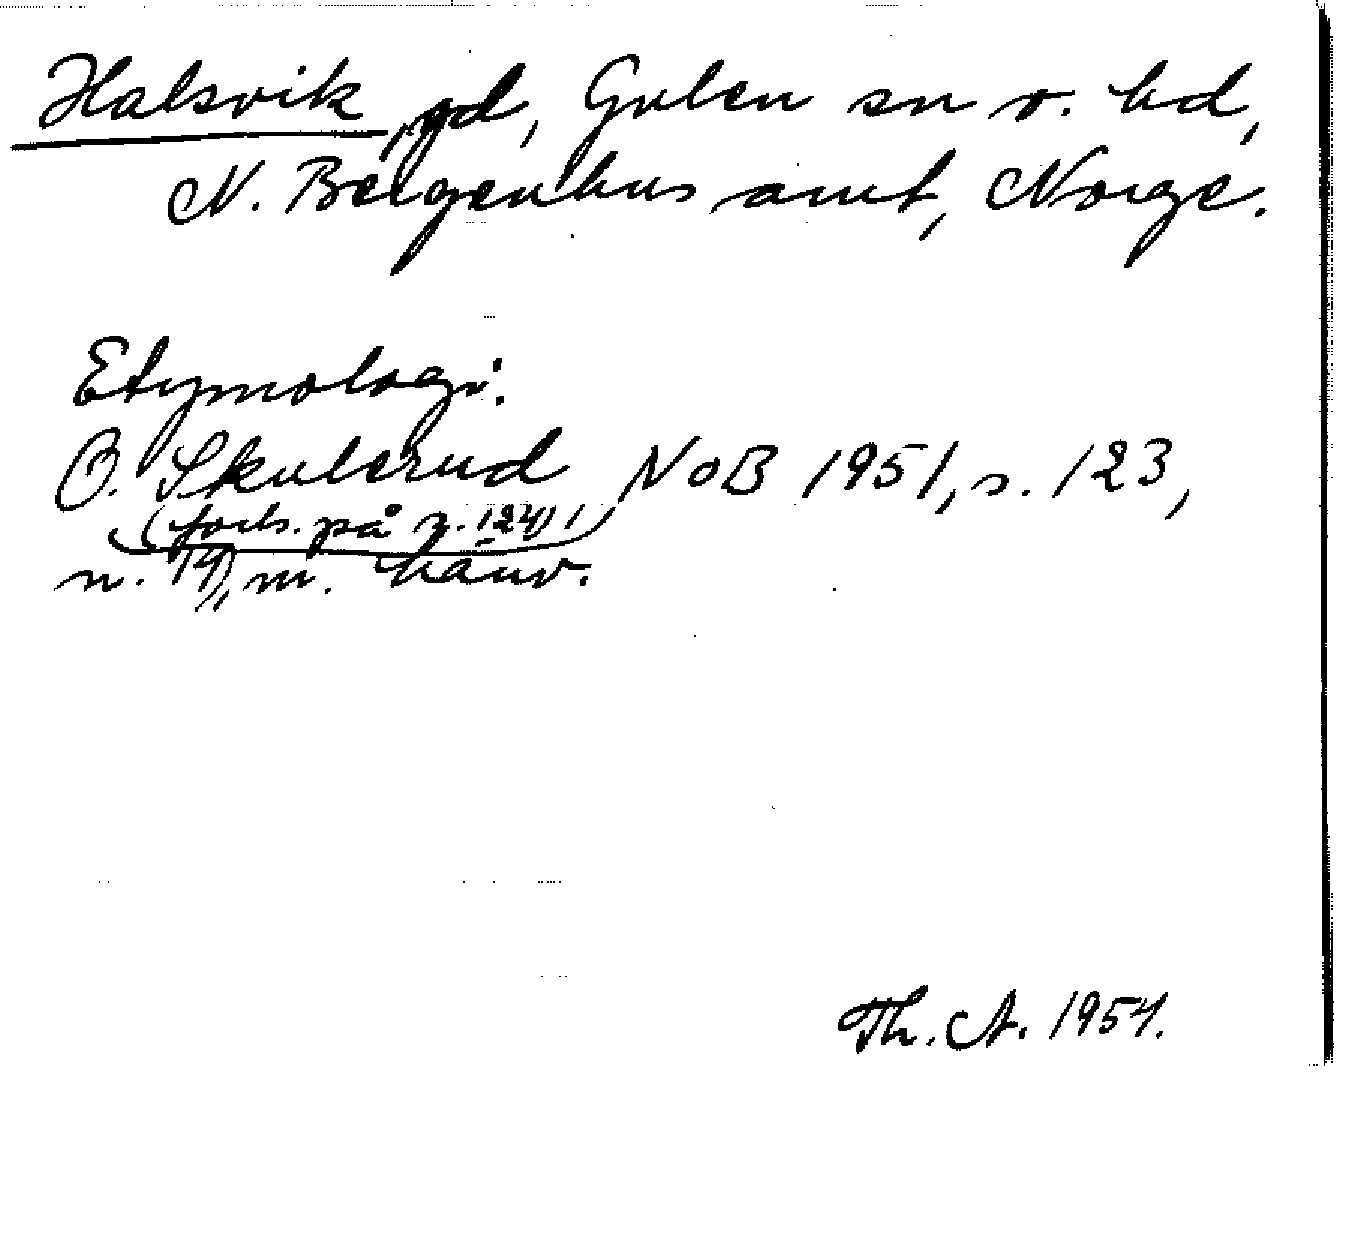 Halsvik, gd, Gulen sn o. hd,
N. Bergenhus amt, Norge.
Etymologi:
O. Skulerud NoB 1951, s. 123,
(forts. på s. 124),
n. 19), m. hänv.
Th. A. 1954.